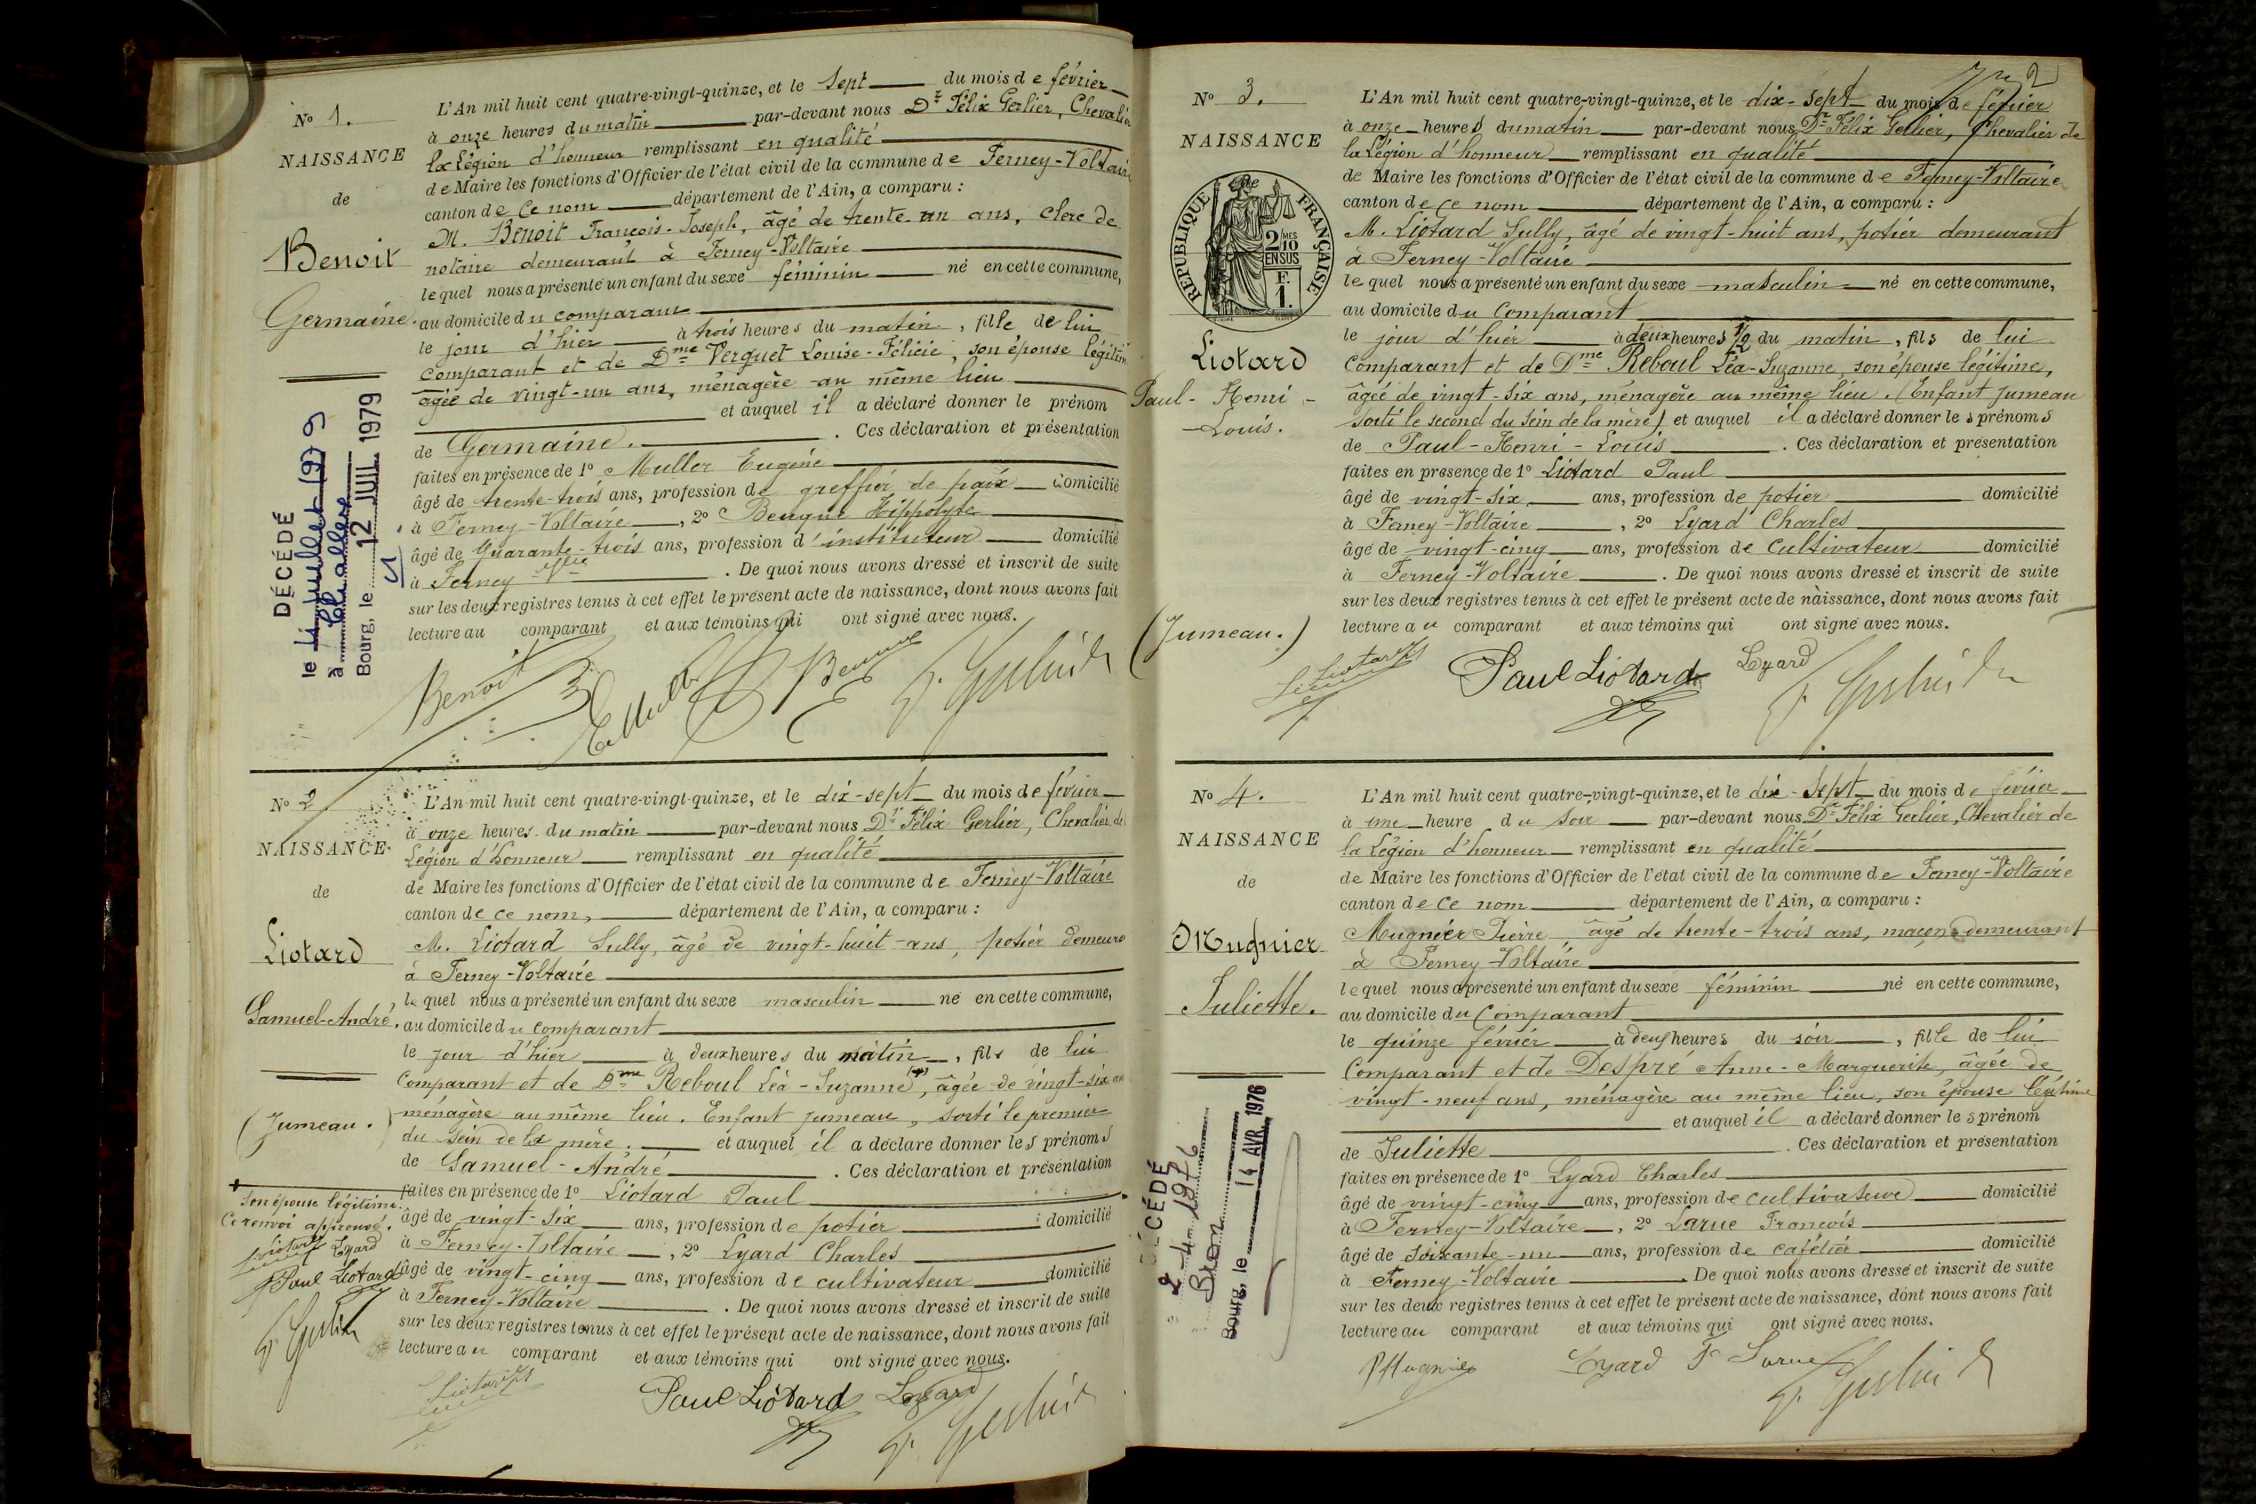 No 1.
NAISSANCE
de
Benoit
Germaine.
DÉCÉDÉ
le 4 juillet 1979
à Challex
Bourg, le 12 JUIL. 1979
L'An mil huit cent quatre-vingt-quinze, et le sept du mois de février
à onze heures du matin par-devant nous Dr Félix Gerlier, Chevalier
la Légion d'honneur remplissant en qualité
de Maire les fonctions d'Officier de l'état civil de la commune de Ferney-Voltaire
canton de ce nom département de l'Ain, a comparu :
M. Benoit François-Joseph, âgé de trente-un ans, clerc de
notaire demeurant à Ferney-Voltaire
lequel nous a présenté un enfant du sexe féminin né en cette commune,
au domicile du comparant
le jour d'hier à trois heures du matin, fille de lui
comparant et de Dme Verquet Louise-Félicie, son épouse légitime
âgée de vingt-un ans, ménagère au même lieu
et auquel il a déclaré donner le prénom
de Germaine. Ces déclaration et présentation
faites en présence de 1o Muller Eugène
âgé de trente-trois ans, profession de greffier de paix domicilié
à Ferney-Voltaire, 2o Bengue Hippolyte
âgé de quarante-trois ans, profession d'instituteur domicilié
à Ferney-Vltre. De quoi nous avons dressé et inscrit de suite
sur les deux registres tenus à cet effet le présent acte de naissance, dont nous avons fait
lecture au comparant et aux témoins qui ont signé avec nous.
Benoit E Muller F. Gerlier Dr
No 2
NAISSANCE
de
Liotard
Samuel-André.
(Jumeau.)
L'An mil huit cent quatre-vingt-quinze, et le dix-sept du mois de février
à onze heures du matin par-devant nous Dr Félix Gerlier, Chevalier de
Légion d'honneur remplissant en qualité
de Maire les fonctions d'Officier de l'état civil de la commune de Ferney-Voltaire
canton de ce nom, département de l'Ain, a comparu :
M. Liotard Sully, âgé de vingt-huit-ans, potier demeure
à Ferney-Voltaire
lequel nous a présenté un enfant du sexe masculin né en cette commune,
au domicile du comparant
le jour d'hier à deux heures du matin, fils de lui
comparant et de Dme Reboul Léa-Suzanne (+), âgée de vingt-six ans
ménagère au même lieu. Enfant jumeau, sorti le premier
du sein de la mère. et auquel il a déclaré donner les prénoms
de Samuel-André. Ces déclaration et présentation
faites en présence de 1o Liotard Paul
âgé de vingt-six ans, profession de potier domicilié
à Ferney-Voltaire, 2o Lyard Charles
âgé de vingt-cinq ans, profession de cultivateur domicilié
à Ferney-Voltaire. De quoi nous avons dressé et inscrit de suite
sur les deux registres tenus à cet effet le présent acte de naissance, dont nous avons fait
lecture au comparant et aux témoins qui ont signé avec nous.
+ son épouse légitime.
Ce renvoi approuvé.
Liotard Lyard
Paul Liotard
F. Gerlier
Liotard Paul Liotard Lyard F. Gerlier Dr
2
No 3.
NAISSANCE
RÉPUBLIQUE FRANÇAISE
2 MES
10
EN SUS
F.
1.
de
Liotard
Paul-Henri-
Louis.
(Jumeau.)
L'An mil huit cent quatre-vingt-quinze, et le dix-sept du mois de février
à onze heures du matin par-devant nous Dr Félix Gerlier, Chevalier de
la Légion d'honneur remplissant en qualité
de Maire les fonctions d'Officier de l'état civil de la commune de Ferney-Voltaire
canton de ce nom département de l'Ain, a comparu :
M. Liotard Sully, âgé de vingt-huit ans, potier demeurant
à Ferney-Voltaire
lequel nous a présenté un enfant du sexe masculin né en cette commune,
au domicile du comparant
le jour d'hier à deux heures 1/2 du matin, fils de lui
comparant et de Dme Reboul Léa-Suzanne, son épouse légitime,
âgée de vingt-six ans, ménagère au même lieu. (Enfant jumeau
sorti le second du sein de la mère) et auquel il a déclaré donner les prénoms
de Paul-Henri-Louis. Ces déclaration et présentation
faites en présence de 1o Liotard Paul
âgé de vingt-six ans, profession de potier domicilié
à Ferney-Voltaire, 2o Lyard Charles
âgé de vingt-cinq ans, profession de cultivateur domicilié
à Ferney-Voltaire. De quoi nous avons dressé et inscrit de suite
sur les deux registres tenus à cet effet le présent acte de naissance, dont nous avons fait
lecture au comparant et aux témoins qui ont signé avec nous.
Liotard Paul Liotard Lyard F. Gerlier Dr
No 4.
NAISSANCE
de
Mugnier
Juliette.
DÉCÉDÉ
2-4-1976
Bron
Bourg, le 14 AVR. 1976
L'An mil huit cent quatre-vingt-quinze, et le dix-sept du mois de février
à une heure du soir par-devant nous Dr Félix Gerlier, Chevalier de
la Légion d'honneur remplissant en qualité
de Maire les fonctions d'Officier de l'état civil de la commune de Ferney-Voltaire
canton de ce nom département de l'Ain, a comparu :
Mugnier Pierre âgé de trente-trois ans, maçon demeurant
à Ferney-Voltaire
lequel nous a présenté un enfant du sexe féminin né en cette commune,
au domicile du comparant
le quinze février à deux heures du soir, fille de lui
comparant et de Despré Anne-Marguerite, âgée de
vingt-neuf ans, ménagère au même lieu, son épouse légitime
et auquel il a déclaré donner les prénom
de Juliette. Ces déclaration et présentation
faites en présence de 1o Lyard Charles
âgé de vingt-cinq ans, profession de cultivateur domicilié
à Ferney-Voltaire, 2o Larue François
âgé de soixante-un ans, profession de cafétier domicilié
à Ferney-Voltaire. De quoi nous avons dressé et inscrit de suite
sur les deux registres tenus à cet effet le présent acte de naissance, dont nous avons fait
lecture au comparant et aux témoins qui ont signé avec nous.
P Mugnier Lyard Fs Larue F. Gerlier Dr